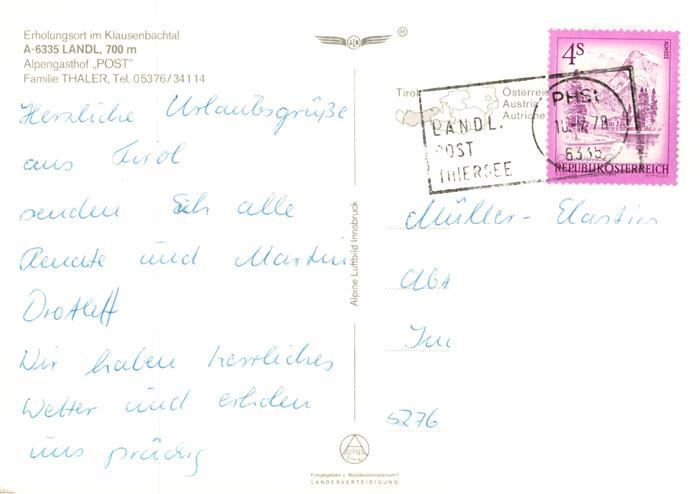 Erholungsort im Klausenbachtal
A-6335 LANDL, 700 m
Alpengasthof „POST"
Familie THALER, Tel. 05376/34114
Herzliche Urlaubsgrüße
aus Tirol
senden Euch alle
Renate und Martin
Wir haben herrliches
Wetter und erholen
uns prächtig
Alpine Luftbild Innsbruck
ALPINE
Freigegeben v. Bundesministerium f.
LANDESVERTEIDIGUNG
®
Tirol
Österreich
Austria
Autriche
LANDL.
POST
THIERSEE
4S
ALMSEE
6335
REPUBLIK ÖSTERREICH
Müller-Elastics
Abt
5276